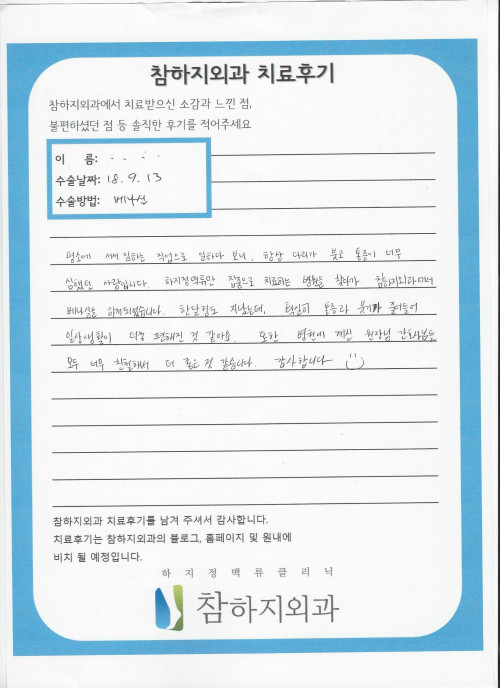 참하지외과 치료후기
참하지외과에서 치료받으신 소감과 느낀 점,
불편하셨던 점 등 솔직한 후기를 적어주세요
이 름:
수술날짜: 18. 9. 13
수술방법: 베나실
평소에 서서 일하는 직업으로 일하다 보니, 항상 다리가 붓고 통증이 너무
심했던 사람입니다. 하지정맥류만 집중으로 치료하는 병원을 찾다가 참하지외과에서
베나실을 하게되었습니다. 한달정도 지났는데, 확실히 통증과 붓기가 줄어들어
일상생활이 더욱 편해진 것 같아요. 또한 병원에 계신 원장님 간호사분도
모두 너무 친절해서 더 좋은 것 같습니다. 감사합니다
참하지외과 치료후기를 남겨 주셔서 감사합니다.
치료후기는 참하지외과의 블로그, 홈페이지 및 원내에
비치 될 예정입니다.
하지정맥류클리닉
참하지외과